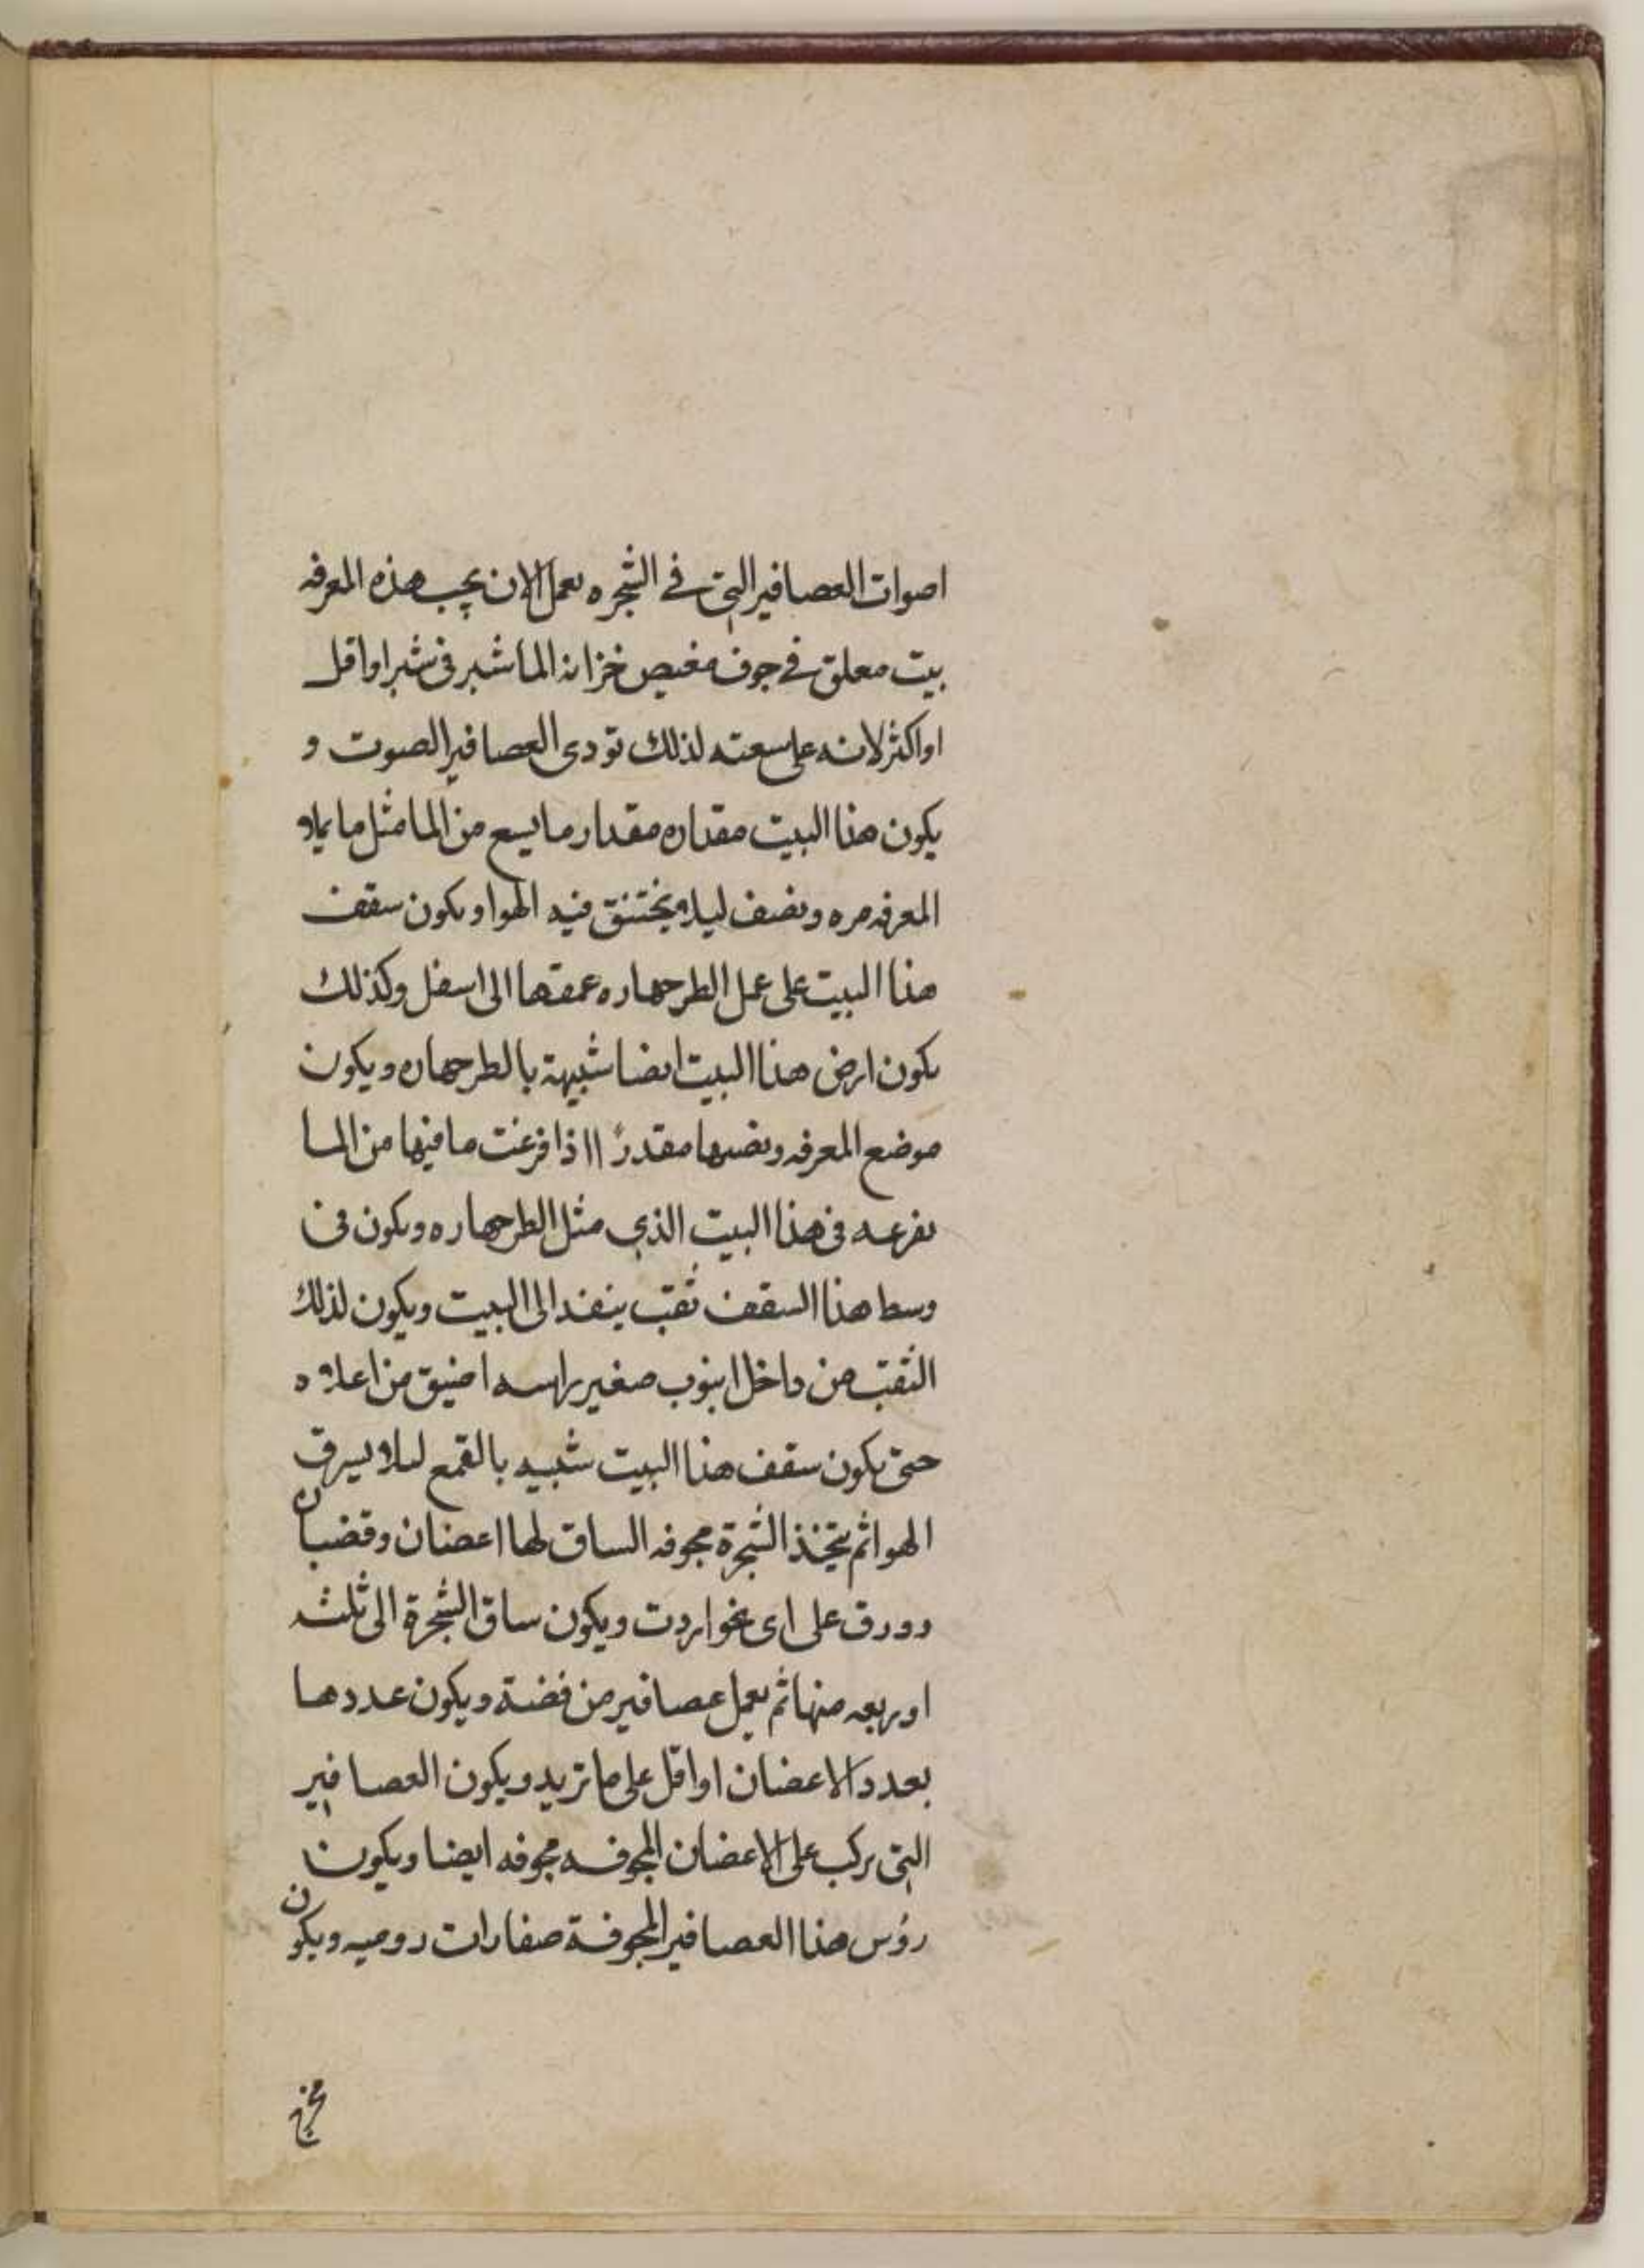 اصوات العصافير التي في الشجره نعمل الان يجب هذه المعرفه
بيت معلق في جوف مغيص خزانه الما شبر في شبر او اقل
او اكثر لانه على سعته لذلك تودى العصافير الصوت و
يكون هذا البيت مقداره مقدار ما يسع من الما مثل ما يملاو
المعرفه مره ونصف ليلا يختنق فيه الهوا ويكون سقف
هذا البيت على عمل الطرجهاره عمقها الى اسفل وكذلك
يكون ارض هذا البيت ايضا شبيهة بالطرجهاره ويكون
موضع المعرفه ونصبها مقدرً ااذا فرغت ما فيها من الما
نفرغه في هذا البيت الذي مثل الطرجهاره ويكون في
وسط هذا السقف ثقب ينفد الى البيت ويكون لذلك
الثقب من داخل انبوب صغير راسه اضيق من اعلاه
حتى يكون سقف هذا البيت شبيه بالقمع ليلا يسرق
الهوا ثم يتخذ الشجرة مجوفه الساق لها اغصان وقضبان
وورق على اى نحو اردت ويكون ساق الشجرة الى ثلثه
اوربعه منها ثم يعمل عصافير من فضة ويكون عددها
بعدد الاغصان او اقل على ما تريد ويكون العصافير
التي يركب على الاغصان المجوفه مجوفه ايضا ويكون
رؤس هذا العصافير المجوفة صفارات روميه ويكون
مخرج